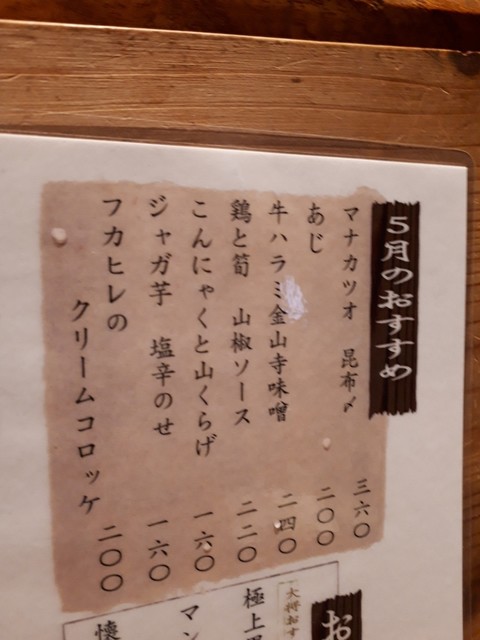 5月のおすすめ
マナカツオ 昆布〆 三六〇
あじ 二〇〇
牛ハラミ金山寺味噌 二四〇
鶏と筍 山椒ソース 二二〇
こんにゃくと山くらげ 一六〇
ジャガ芋 塩辛のせ 一六〇
フカヒレの
クリームコロッケ 二〇〇
お
大将おす
極上
マン
懐